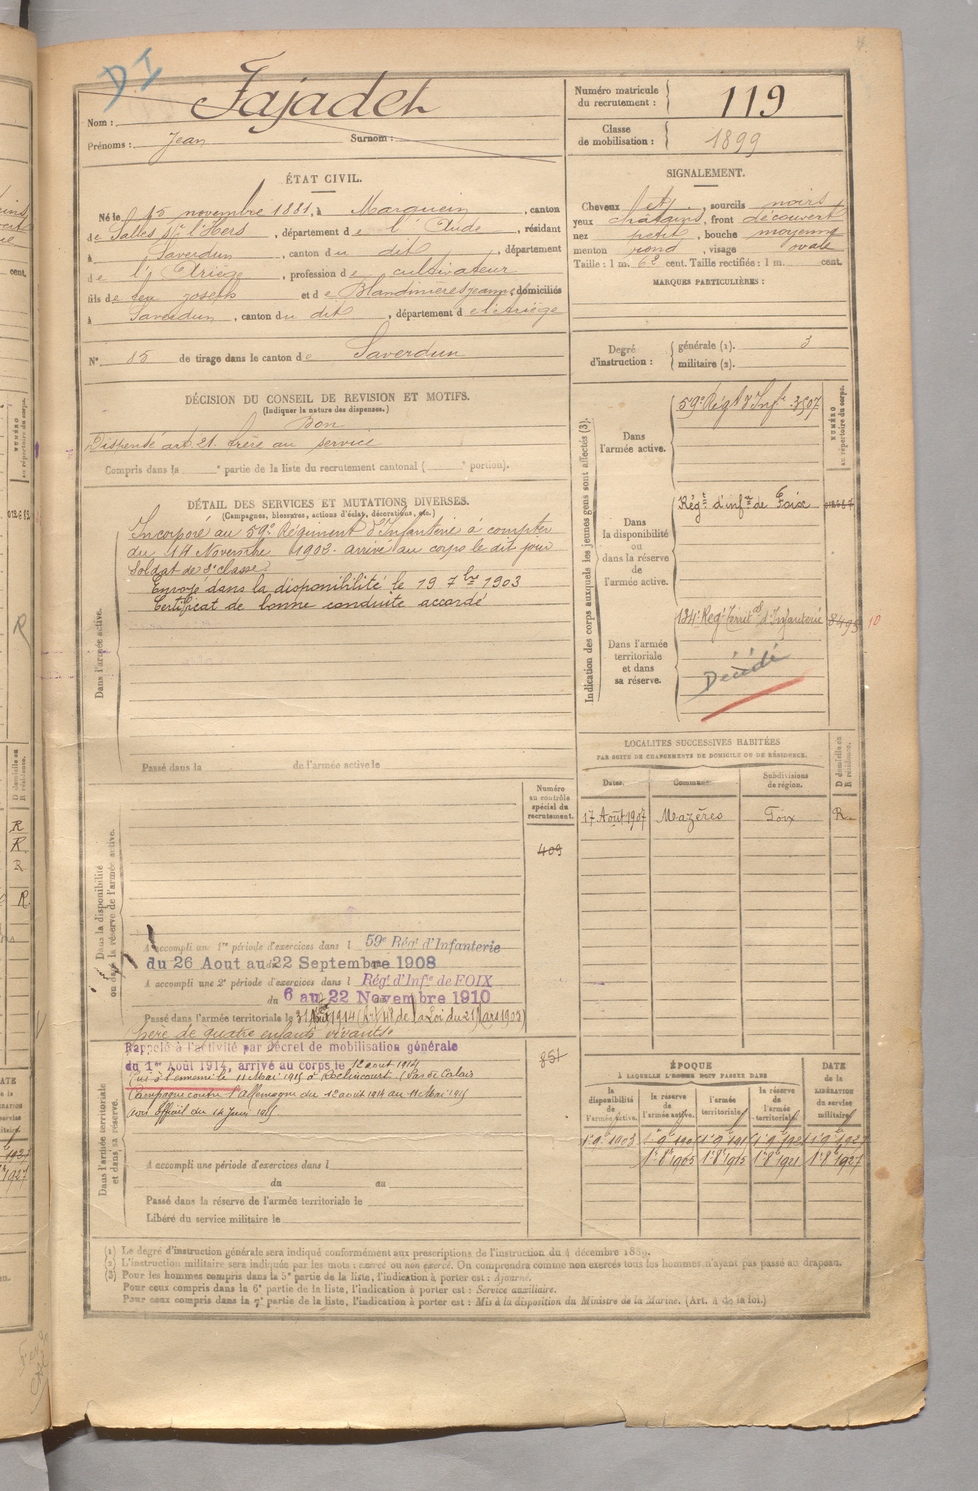 DI
Nom : Fajadet
Prénoms : Jean Surnom :
Numéro matricule du recrutement : 119
Classe de mobilisation : 1899
ÉTAT CIVIL.
Né le 15 novembre 1881, à Marquein, canton
de Salles s/ l'Hers, département de l'Aude, résidant
à Saverdun, canton du dit, département
de l'Ariège, profession de cultivateur
fils de feu Joseph et de Blandinières Jeanne, domiciliés
à Saverdun, canton du dit, département de l'Ariège
N° 85 de tirage dans le canton de Saverdun
SIGNALEMENT.
Cheveux et, sourcils noirs
yeux châtains, front découvert
nez petit, bouche moyenne
menton rond, visage ovale
Taille : 1 m. 62 cent. Taille rectifiée : 1 m. cent.
MARQUES PARTICULIÈRES :
Degré d'instruction : générale (1). 3
militaire (2).
DÉCISION DU CONSEIL DE REVISION ET MOTIFS.
(Indiquer la nature des dispenses.)
Bon
Dispensé art. 21. frère au service
Compris dans la e partie de la liste du recrutement cantonal ( e portion).
DÉTAIL DES SERVICES ET MUTATIONS DIVERSES.
(Campagnes, blessures, actions d'éclat, décorations, etc.)
Dans l'armée active.
Incorporé au 59e Régiment d'Infanterie à compter
du 14 Novembre 1902. arrivé au corps le dit jour
Soldat de 2e classe.
Envoyé dans la disponibilité le 19 7bre 1903
Certificat de bonne conduite accordé
Passé dans la de l'armée active le
Indication des corps auxquels les jeunes gens sont affectés (3).
NUMÉRO au répertoire du corps.
Dans l'armée active.
59e Régt d'Inf. 3507
Dans la disponibilité ou dans la réserve de l'armée active.
Régt d'infie de Foix 01267
Dans l'armée territoriale et dans sa réserve.
134e Régt Territal d'Infanterie 8495 10
Décédé
LOCALITÉS SUCCESSIVES HABITÉES
PAR SUITE DE CHANGEMENTS DE DOMICILE OU DE RÉSIDENCE.
Dates. Commune. Subdivisions de région. D domicile ou R résidence.
17 Août 1907 Mazères Foix R.
Numéro au contrôle spécial du recrutement.
409
Dans la disponibilité ou dans la réserve de l'armée active.
A accompli une 1re période d'exercices dans l 59e Rég. d'Infanterie
du 26 Aout au 22 Septembre 1908
A accompli une 2e période d'exercices dans l Régt d'Infie de FOIX
du 6 au 22 Novembre 1910
Passé dans l'armée territoriale le 31 Août 1914 (Art. 48 de la Loi du 21 Mars 1905)
père de quatre enfants vivants.
851
Dans l'armée territoriale et dans sa réserve.
Rappelé à l'activité par décret de mobilisation générale
du 1er Août 1914, arrivé au corps le 12 aout 1914
Tué à l'ennemi le 11 Mai 1915 à Roclincourt (Pas de Calais
Campagne contre l'allemagne du 12 aout 1914 au 11 Mai 1915
avis officiel du 14 Juin 1915
A accompli une période d'exercices dans l
du au
Passé dans la réserve de l'armée territoriale le
Libéré du service militaire le
ÉPOQUE
À LAQUELLE L'HOMME DOIT PASSER DANS
la disponibilité de l'armée active. la réserve de l'armée active. l'armée territoriale. la réserve de l'armée territoriale.
DATE de la LIBÉRATION du service militaire.
1er 9e 1903 1er 9e 1905 1er 9e 1915 1er 9e 1921 1er 9e 1927
1er 8e 1905 1er 8e 1915 1er 8e 1921 1er 8e 1927
(1) Le degré d'instruction générale sera indiqué conformément aux prescriptions de l'instruction du 4 décembre 1889.
(2) L'instruction militaire sera indiquée par les mots : exercé ou non exercé. On comprendra comme non exercés tous les hommes n'ayant pas passé au drapeau.
(3) Pour les hommes compris dans la 5e partie de la liste, l'indication à porter est : Ajourné.
Pour ceux compris dans la 6e partie de la liste, l'indication à porter est : Service auxiliaire.
Pour ceux compris dans la 7e partie de la liste, l'indication à porter est : Mis à la disposition du Ministre de la Marine. (Art. 4 de la loi.)